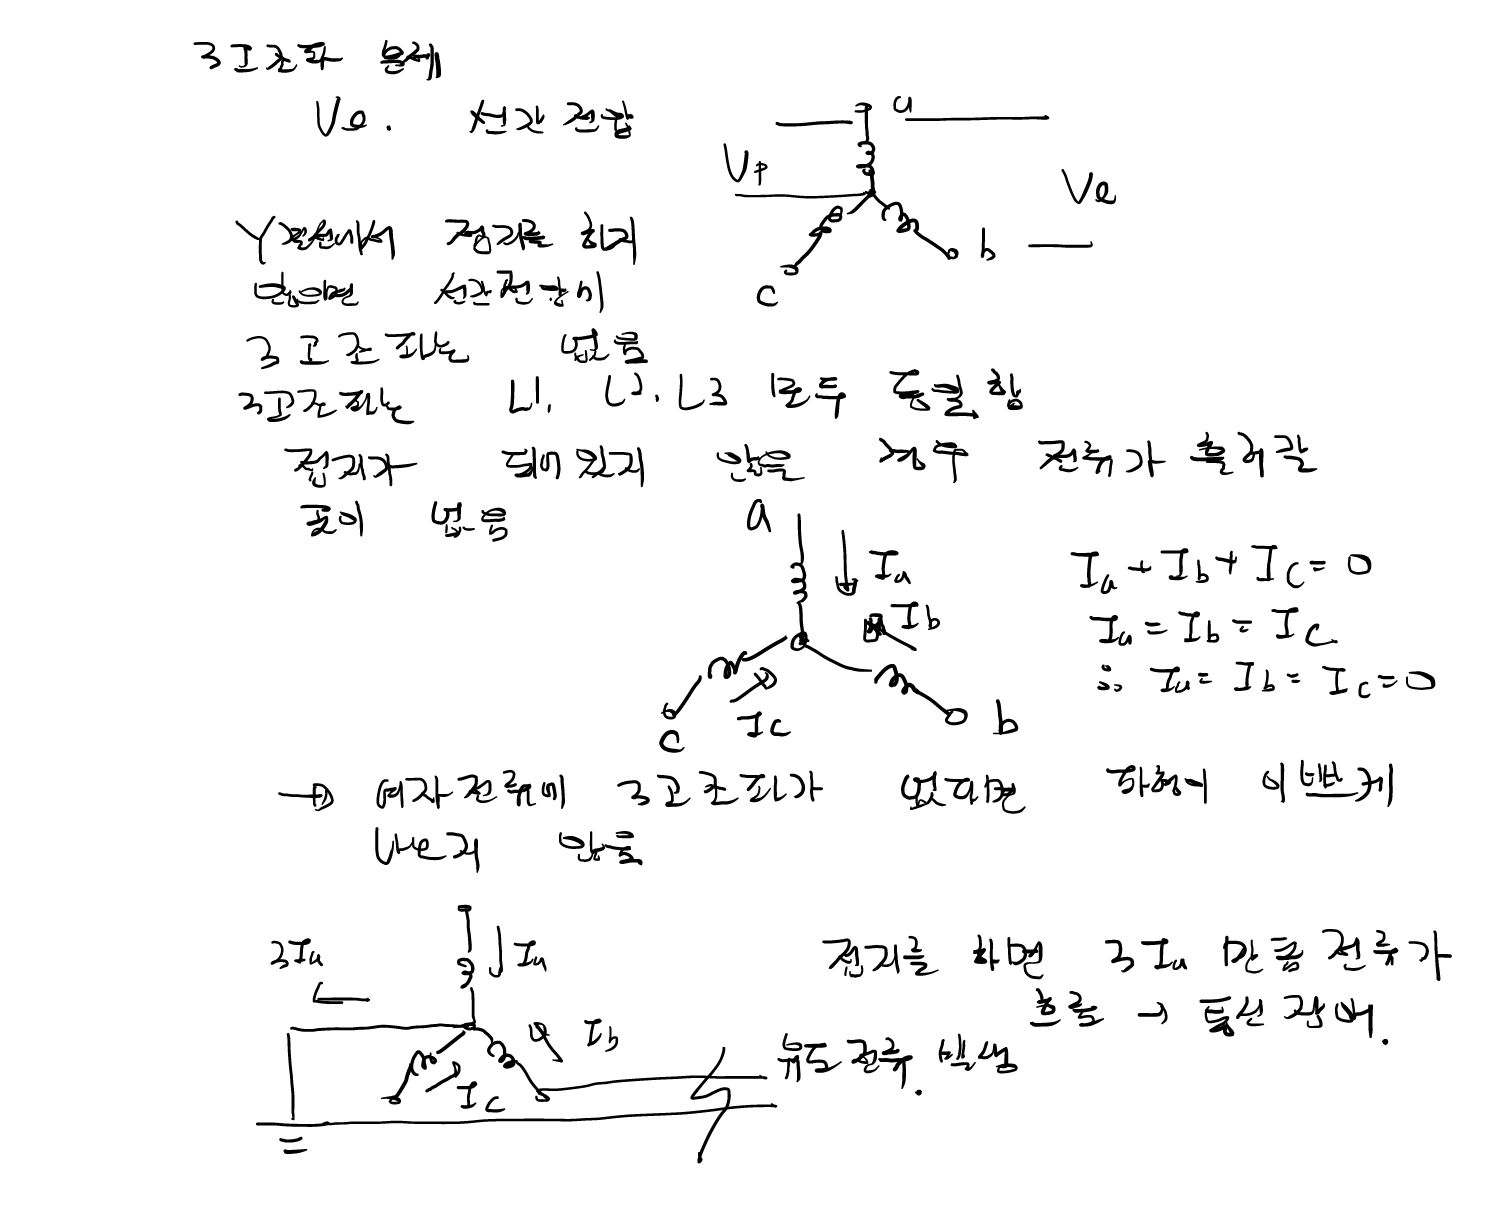 3고조파 문제
Vl. 선간 전압
a
Vp
Vl
b
c
Y결선에서 접지를 하지
않으면 선간전압이
3고조파는 없음
3고조파는 L1, L2, L3 모두 동일함
접지가 되어있지 않을 경우 전류가 흘러갈
곳이 없음
a
Ia
Ib
Ic
c
b
Ia + Ib + Ic = 0
Ia = Ib = Ic
∴ Ia = Ib = Ic = 0
→ 여자전류에 3고조파가 없다면 파형이 이쁘게
나오지 않음
3Ia
Ia
Ib
Ic
접지를 하면 3Ia 만큼 전류가
흐름 → 통신 장애.
유도전류.